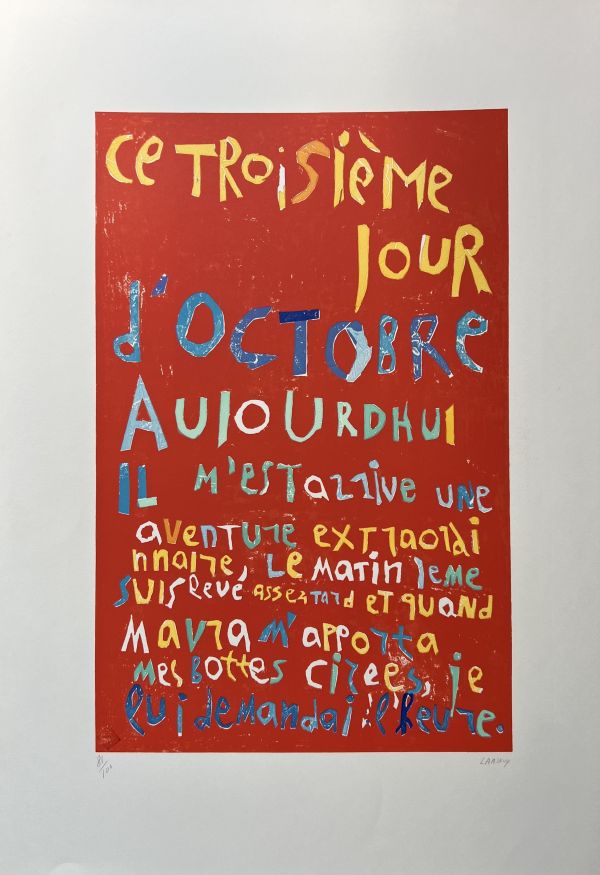 Ce TROISIÈME
JOUR
d'OCTOBRe
AUJOURDHUI
IL m'esT aRRive UNe
aventure extraordi
nnaire, Le Matin Jeme
suis levé assez tard et quand
Mavra m'apporta
Mes Bottes cirées, je
lui demandai l'heure.
81/100
LANSKOY